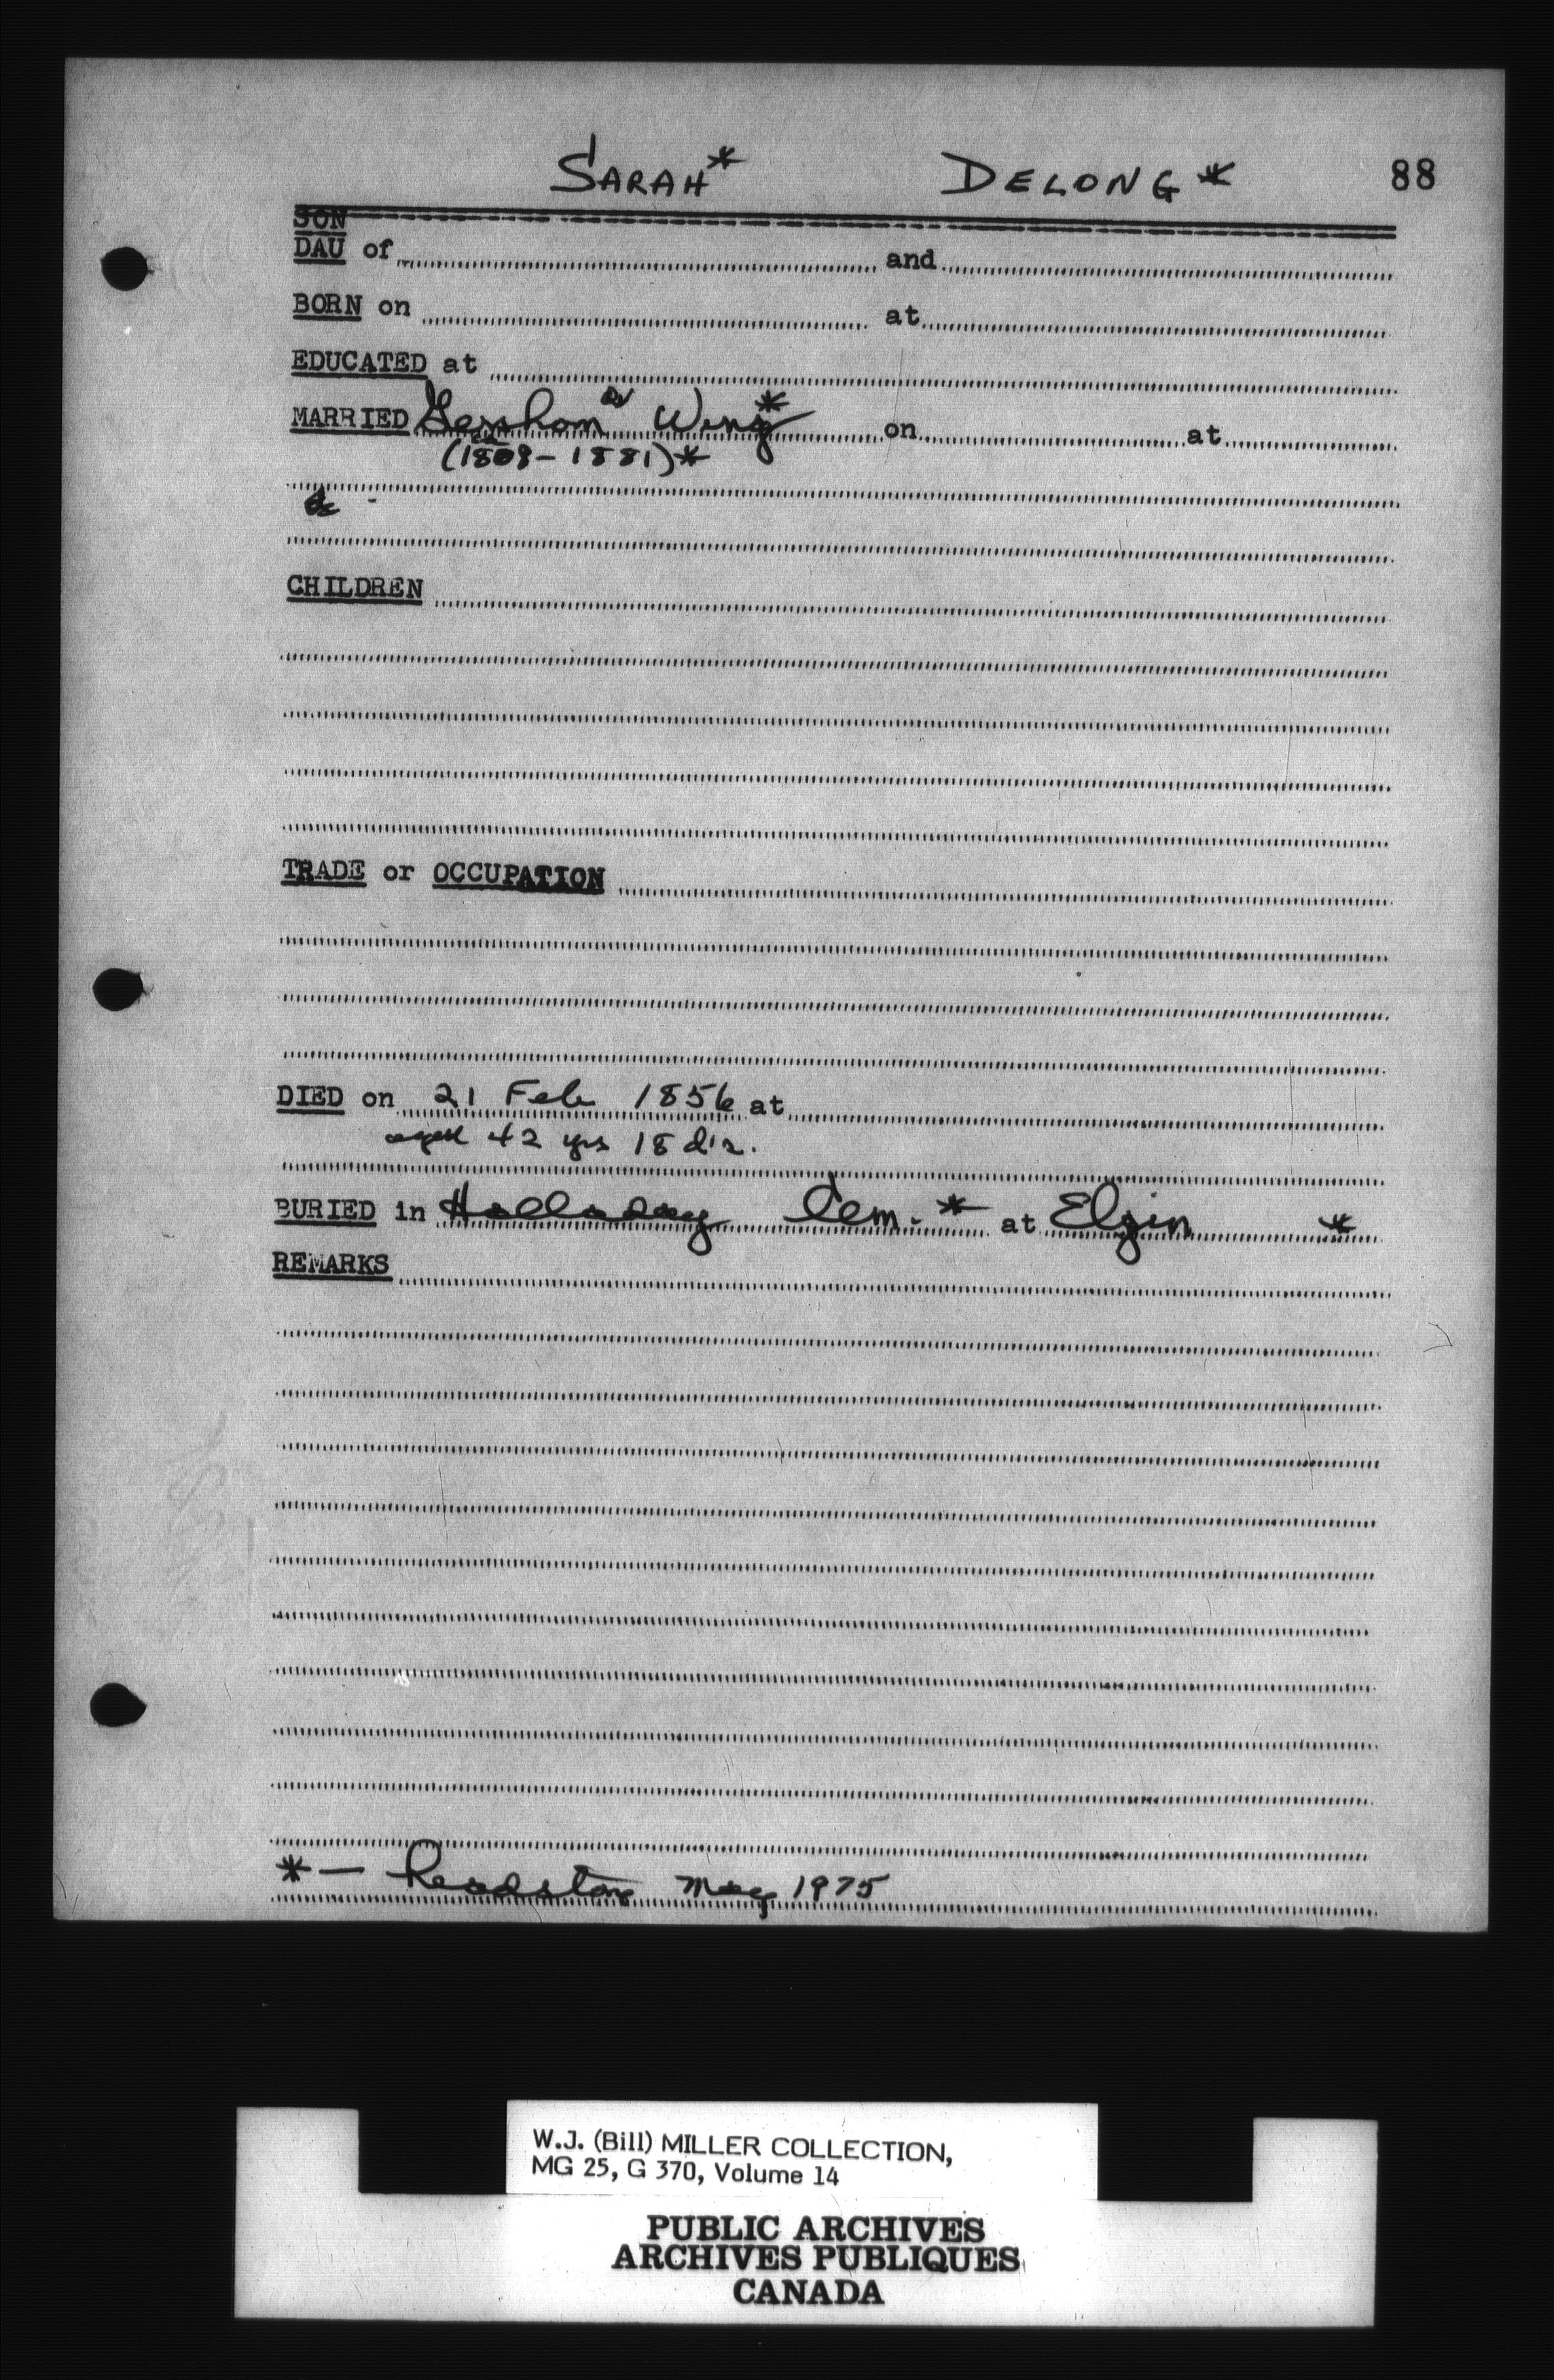 SARAH* DELONG* 88
SON
DAU of and
BORN on at
EDUCATED at
MARRIED Gershom W Wing* on at
(1808-1881)*
&
CHILDREN
TRADE or OCCUPATION
DIED on 21 Feb 1856 at
aged 42 yrs 18 d's.
BURIED in Halladay Cem.* at Elgin *
REMARKS
*- Headstone May 1975
W.J. (Bill) MILLER COLLECTION,
MG 25, G 370, Volume 14
PUBLIC ARCHIVES
ARCHIVES PUBLIQUES
CANADA